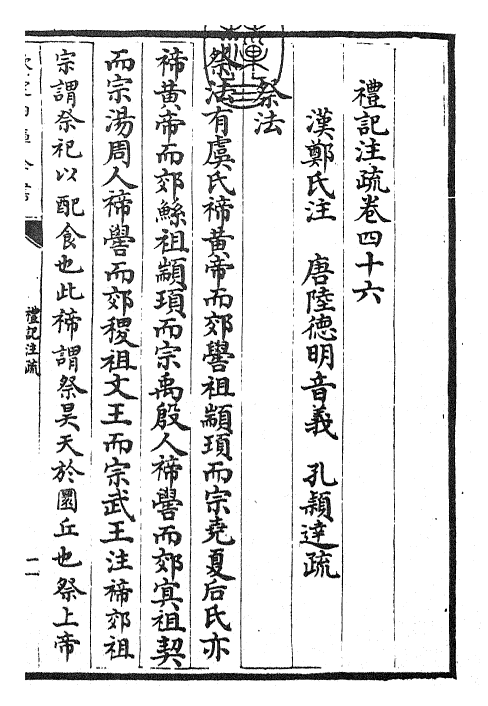 禮記注疏卷四十六
漢鄭氏注　唐陸德明音義　孔穎達疏
祭法
祭法有虞氏禘黃帝而郊嚳祖顓頊而宗堯夏后氏亦
禘黃帝而郊鯀祖顓頊而宗禹殷人禘嚳而郊冥祖契
而宗湯周人禘嚳而郊稷祖文王而宗武王注禘郊祖
宗謂祭祀以配食也此禘謂祭昊天於圜丘也祭上帝
禮記注疏
一